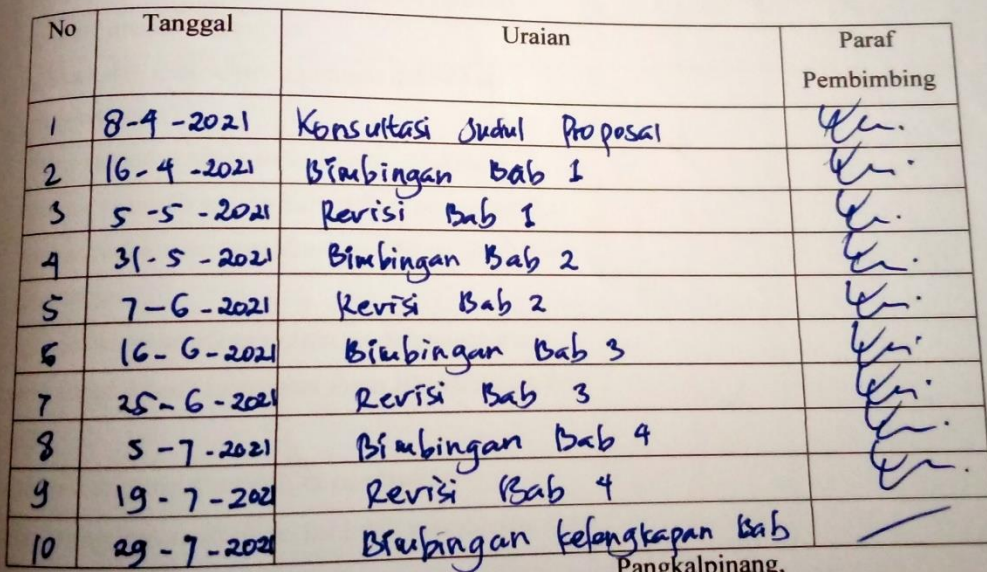 No Tanggal Uraian Paraf Pembimbing
1 8-4-2021 Konsultasi Judul Proposal
2 16-4-2021 Bimbingan Bab 1
3 5-5-2021 Revisi Bab 1
4 31-5-2021 Bimbingan Bab 2
5 7-6-2021 Revisi Bab 2
6 16-6-2021 Bimbingan Bab 3
7 25-6-2021 Revisi Bab 3
8 5-7-2021 Bimbingan Bab 4
9 19-7-2021 Revisi Bab 4
10 29-7-2021 Bimbingan kelengkapan Bab
Pangkalpinang,